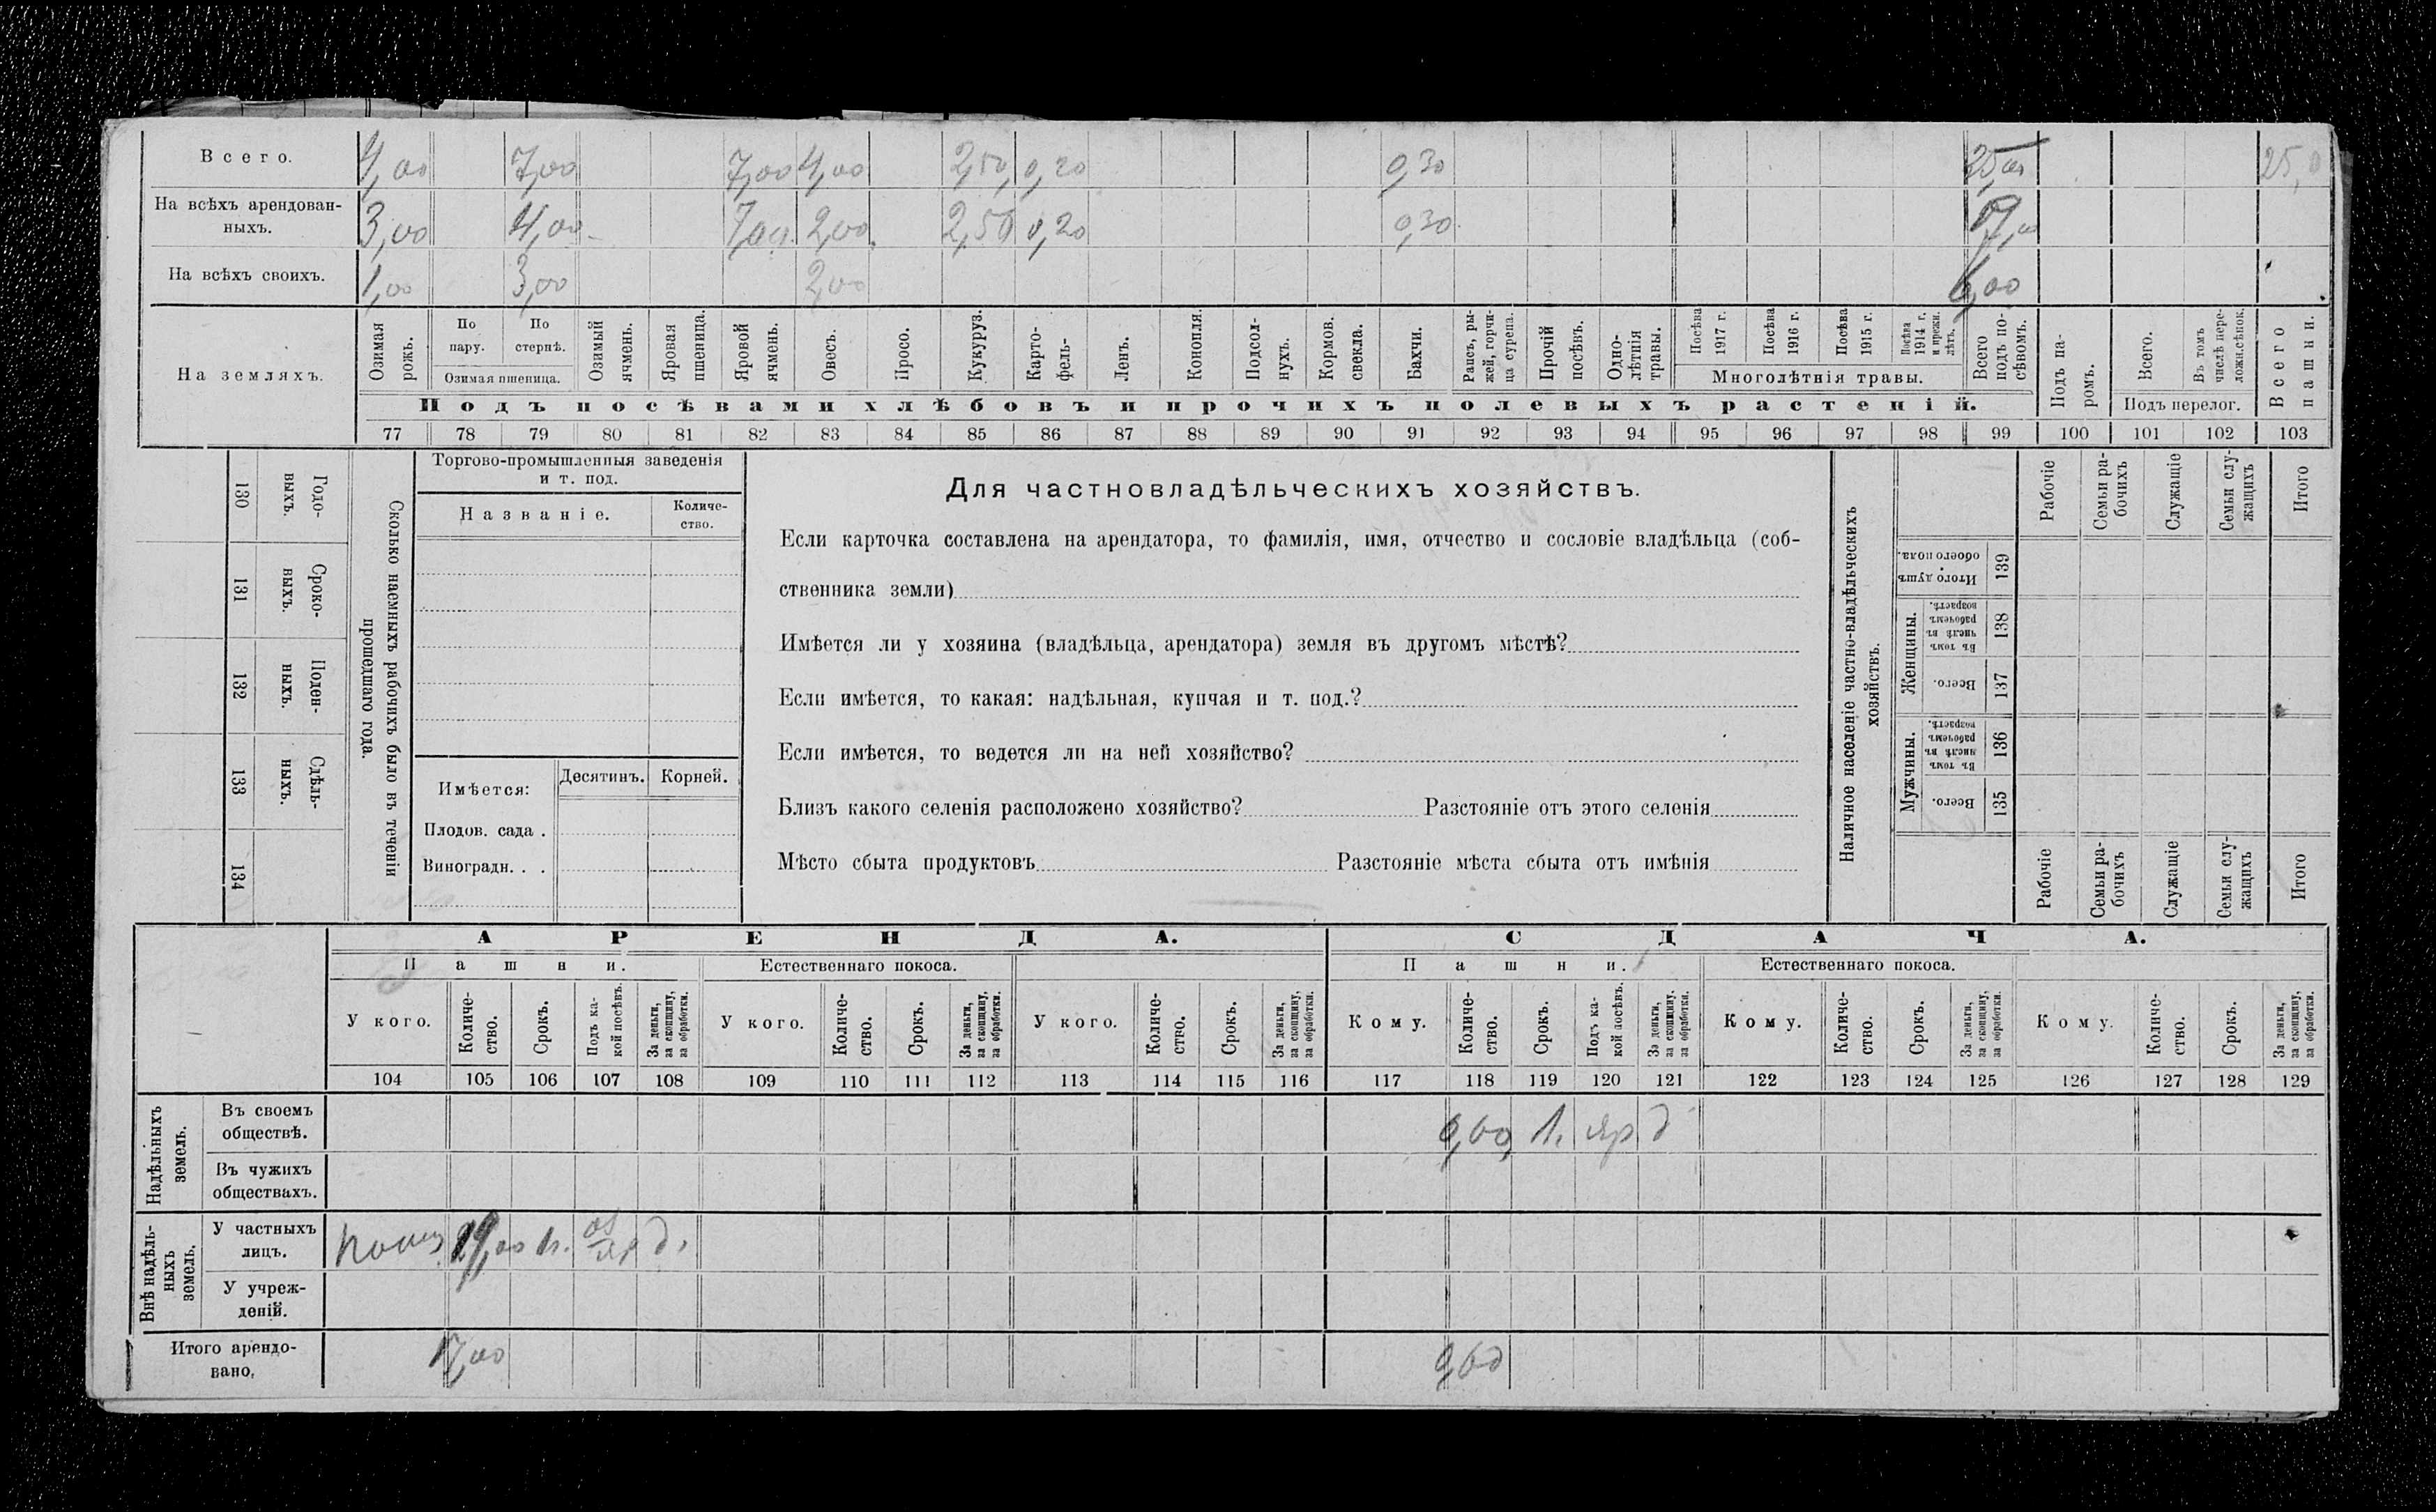 Всего. 4,00 7,00 7,00 4,00 2,50 0,20 0,30 25,00 25,0
На всѣхъ арендован-
ныхъ. 3,00 4,00 7,00 2,00 2,50 0,20 0,30
На всѣхъ своихъ. 1,00 3,00 2,00 6,00
На земляхъ.
Озимая рожь.
По пару.
По стернѣ.
Озимая пшеница.
Озимый ячмень.
Яровая пшеница.
Яровой ячмень.
Овесъ.
Просо.
Кукуруз.
Карто-
фель-
Ленъ.
Конопля.
Подсол-
нухъ.
Кормов. свекла.
Бахчи.
Рапсъ, ры-
жей, горчи-
ца сурепа.
Прочій посѣвъ.
Одно-
лѣтнія травы.
Посѣва 1917 г.
Посѣва 1916 г.
Посѣва 1915 г.
Посѣва 1914 г. и прежн. лѣтъ.
Многолѣтнія травы.
Всего подъ по-
сѣвомъ.
Подъ па-
ромъ.
Всего.
Въ томъ числѣ пере-
ложн.сѣнок.
Подъ перелог.
Всего пашни.
Подъ посѣвами хлѣбовъ и прочихъ полевыхъ растеній.
77 78 79 80 81 82 83 84 85 86 87 88 89 90 91 92 93 94 95 96 97 98 99 100 101 102 103
130 Годо-
выхъ.
131 Сроко-
выхъ.
132 Поден-
ныхъ.
133 Сдѣль-
ныхъ.
134
Сколько наемныхъ рабочихъ было въ теченіи
прошедшаго года.
Торгово-промышленныя заведенія
и т. под.
Названіе.
Количе-
ство.
Имѣется:
Десятинъ. Корней.
Плодов. сада .
Виноградн. . .
Для частновладѣльческихъ хозяйствъ.
Если карточка составлена на арендатора, то фамилія, имя, отчество и сословіе владѣльца (соб-
ственника земли)
Имѣется ли у хозяина (владѣльца, арендатора) земля въ другомъ мѣстѣ?
Если имѣется, то какая: надѣльная, купчая и т. под.?
Если имѣется, то ведется ли на ней хозяйство?
Близъ какого селенія расположено хозяйство? Разстояніе отъ этого селенія
Мѣсто сбыта продуктовъ Разстояніе мѣста сбыта отъ имѣнія
Наличное населеніе частно-владѣльческихъ
хозяйствъ.
Рабочіе
Семьи ра-
бочихъ
Служащіе
Семьи слу-
жащихъ
Итого
Итого душъ
обоего пола.
139
Женщины.
Въ томъ числѣ въ рабочемъ возрастѣ.
138
Всего.
137
Мужчины.
Въ томъ числѣ въ рабочемъ возрастѣ.
136
Всего.
135
Рабочіе
Семьи ра-
бочихъ
Служащіе
Семьи слу-
жащихъ
Итого
АРЕНДА. СДАЧА.
Пашни. Естественнаго покоса. Пашни. Естественнаго покоса.
У кого.
Количе-
ство.
Срокъ.
Подъ ка-
кой посѣвъ.
За деньги,
за скопщину,
за обработки.
У кого.
Количе-
ство.
Срокъ.
За деньги,
за скопщину,
за обработки.
У кого.
Количе-
ство.
Срокъ.
За деньги,
за скопщину,
за обработки.
Кому.
Количе-
ство.
Срокъ.
Подъ ка-
кой посѣвъ.
За деньги,
за скопщину.
за обработки.
Кому.
Количе-
ство.
Срокъ.
За деньги,
за скопщину,
за обработки.
Кому.
Количе-
ство.
Срокъ.
За деньги,
за скопщину,
за обработки.
104 105 106 107 108 109 110 111 112 113 114 115 116 117 118 119 120 121 122 123 124 125 126 127 128 129
Надѣльныхъ
земель.
Въ своемъ
обществѣ. 0,60 1. яр д
Въ чужихъ
обществахъ.
Внѣ надѣль-
ныхъ
земель.
У частныхъ
лицъ. д.
У учреж-
деній.
Итого арендо-
вано. 17,00 0,60